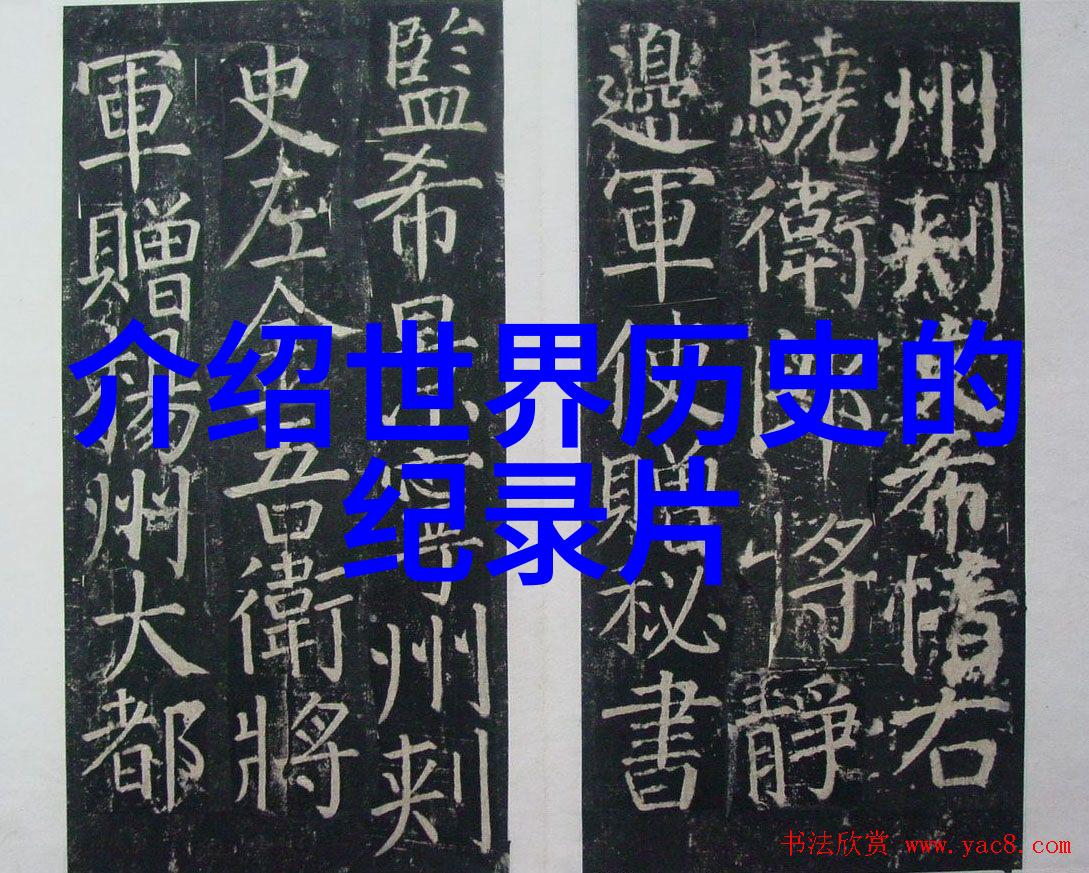 介绍世界历史的
纪录片
州刺史希右
驍衛郎將靜
邊軍使贈秘書
監希景寧州刺
史左金吾衛將
軍贈揚州大都
书法欣赏 www.yac8.com